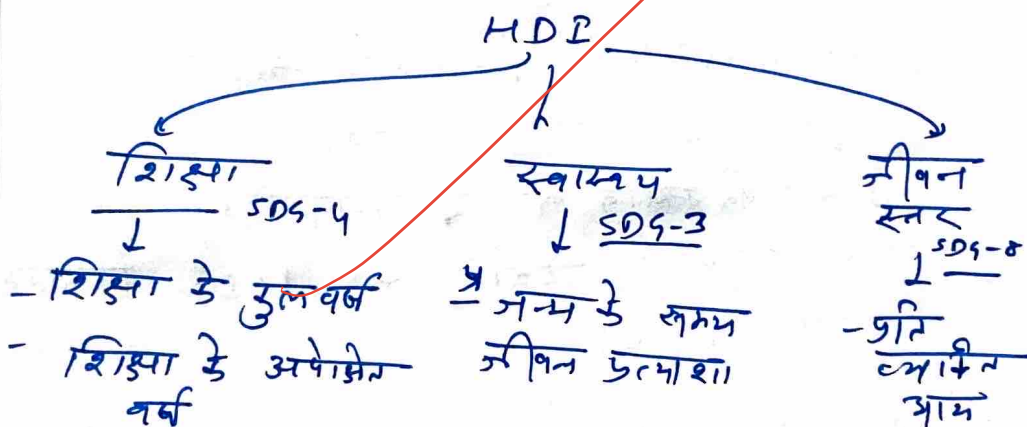 HDI
शिक्षा
SDG-4
- शिक्षा के कुल वर्ष
- शिक्षा के अपेक्षित
वर्ष
स्वास्थ्य
SDG-3
जन्म के समय
जीवन प्रत्याशा
जीवन
स्तर
SDG-8
- प्रति
व्यक्ति
आय